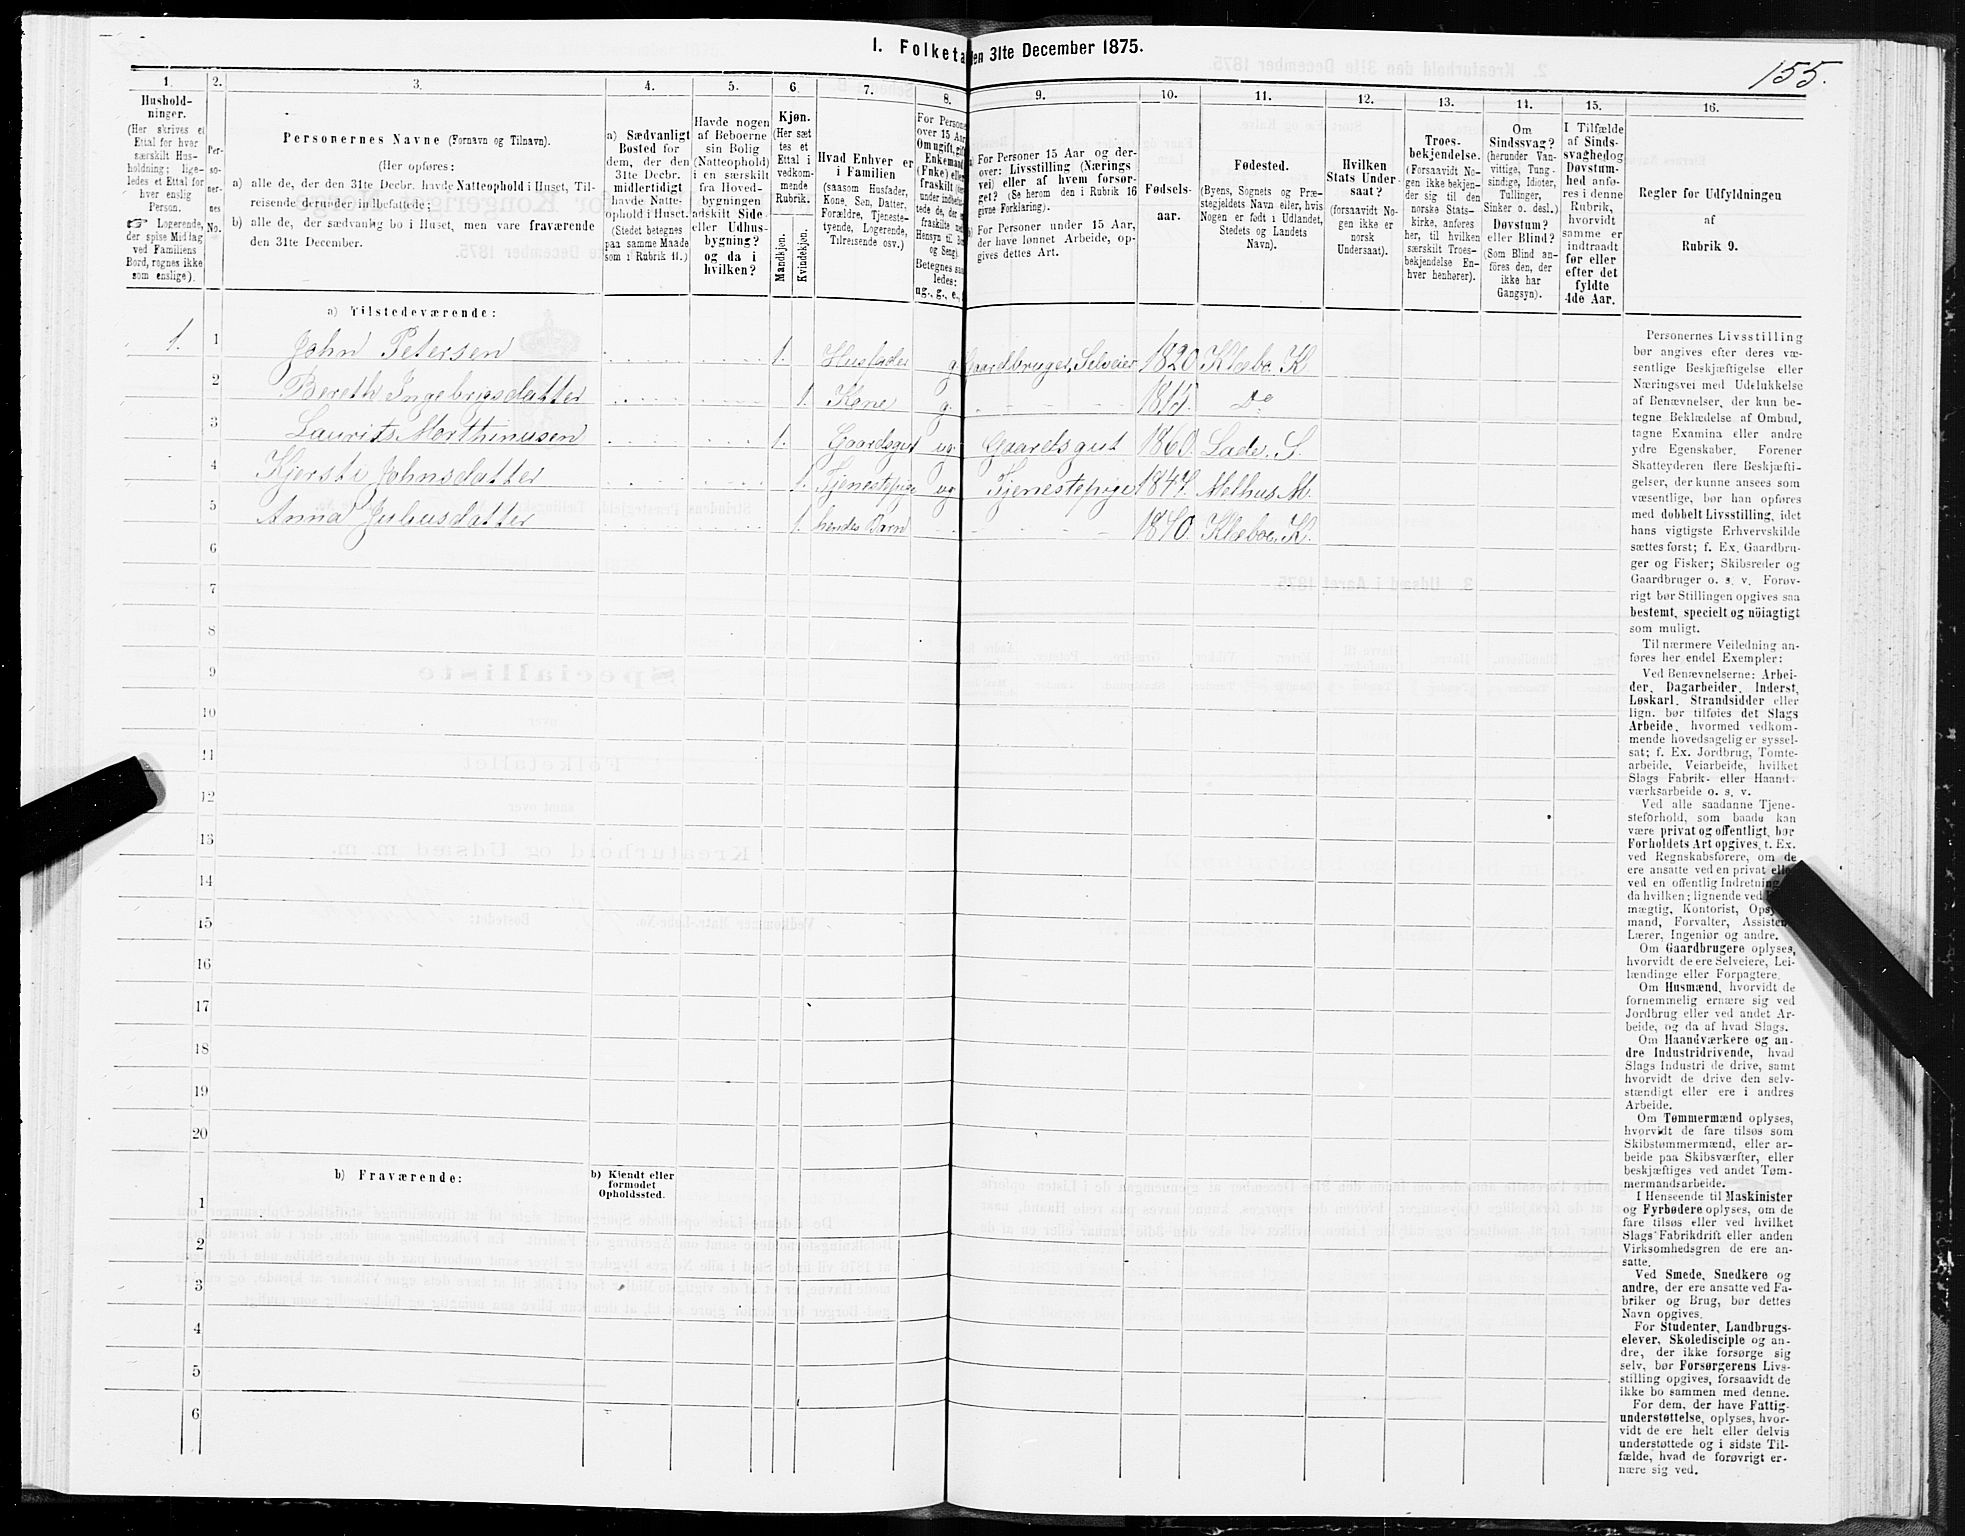 1. Folketa
en 31te December 1875.
155.
1. 2. 3. 4. 5. 6. 7. 8. 9. 10. 11. 12. 13. 14. 15. 16.
Hushold-
ninger.
(Her skrives et
Ettal for hver
særskilt Hus-
holdning; lige-
ledes et Ettal for
hver enslig
Person.
☞ Logerende,
der spise Middag
ved Familiens
Bord, regnes ikke
som enslige).
Per-
so-
ner-
nes
No.
Personernes Navne (Fornavn og Tilnavn).
(Her opføres:
a) alle de, der den 31te Decbr. havde Natteophold i Huset, Til-
reisende derunder indbefattede;
b) alle de, der sædvanlig bo i Huset, men vare fraværende
den 31te December.
a) Sædvanligt
Bosted for
dem, der den
31te Decbr.
midlertidigt
havde Natte-
ophold i Huset.
(Stedet betegnes
paa samme Maade
som i Rubrik 11.)
Havde nogen
af Beboerne
sin Bolig
(Natteophold)
i en særskilt
fra Hoved-
bygningen
adskilt Side-
eller Udhus-
bygning?
og da i
hvilken?
Kjøn.
(Her sæt-
tes et
Ettal i
vedkom-
mende
Rubrik.
Mandkjøn.
Kvindekjøn.
Hvad Enhver er
i Familien
(saasom Husfader,
Kone, Søn, Datter,
Forældre, Tjeneste-
tyende, Logerende,
Tilreisende osv.)
For Persone
over 15 Aar
Om ugift, gift
Enkemand
(Enke) eller
fraskilt
Betegnes saa-
ledes:
ug., g., e.,
a) For Personer 15 Aar og der-
over: Livsstilling (Nærings
vei) eller af hvem forsør-
get? (Se herom den i Rubrik 16
givne Forklaring).
b) For Personer under 15 Aar,
der have lønnet Arbeide, op-
gives dettes Art.
Fødsels-
aar.
Fødested.
(Byens, Sognets og Præ-
stegjeldets Navn eller, hvis
Nogen er født i Udlandet,
Stedets og Landets
Navn).
Hvilken
Stats Under
saat?
(forsaavidt No-
gen ikke er
norsk
Undersaat).
Troes-
bekjendelse.
(Forsaavidt No-
gen ikke bekjen-
der sig til den
norske Stats-
kirke, anføres
her, til hvilken
særskilt Troes-
bekjendelse En-
hver henhører).
Om
Sindssvag?
(herunder Van-
vittige, Tung-
sindige, Idioter,
Tullinger,
Sinker o. desl.)
Døvstum?
eller Blind?
(Som Blind an-
føres den, der
ikke har
Gangsyn).
I Tilfælde
af Sinds-
svaghed og
Døvstum-
hed anfø-
res i denne
Rubrik,
hvorvidt
samme er
indtraadt
før eller
efter det
fyldte
4de Aar.
Regler for Udfyldningen
af
Rubrik 9.
a) Tilstedeværende:
1. 1 John Petersen 1. Husfader g Gaardbruger, Selveier 1820 Klæbo. K
2 Bereth Ingebrigsdatter 1. Kone g. Do
3 Laurits Morthinusen 1. Gaardsgut ug. Gaardsgut 1860. Lade. S.
4 Kjersti Johnsdatter 1. Tjenestepige ug Tjenestepige 1844. Melhus M.
5 Anna Juliusdatter 1. hendes Barn 1870. Klæboe. K.
6
7
8
9
10
11
12
13
14
15
16
17
18
19
20
b) Fraværende:
b) Kjendt eller
formodet
Opholdssted.
1
2
3
4
5
6
Personernes Livsstilling
bør angives efter deres væ-
sentlige Beskjæftigelse eller
Næringsvei med Udelukkelse
af Benævnelser, der kun be-
tegne Beklædelse af Ombud,
tagne Examina eller andre
ydre Egenskaber. Forener
Skatteyderen flere Beskjæfti-
gelser, der kunne ansees som
væsentlige, bør han opføres
med dobbelt Livsstilling, idet
hans vigtigste Erhvervskilde
sættes først; f. Ex. Gaardbru-
ger og Fisker; Skibsreder og
Gaardbruger o. s. v. Forøv-
rigt bør Stillingen opgives saa
bestemt, specielt og nöiagtigt
som muligt.
Til nærmere Veiledning an-
føres her endel Exempler:
Ved Benævnelserne: Arbei-
der, Dagarbeider, Inderst,
Løskarl, Strandsidder eller
lign. bør tilføies det Slags
Arbeide, hvormed vedkom-
mende hovedsagelig er syssel-
sat; f. Ex. Jordbrug, Tomte-
arbeide, Veiarbeide, hvilket
Slags Fabrik- eller Haand-
værksarbeide o. s. v.
Ved alle saadanne Tjene-
steforhold, som baade kan
være privat og offentligt, bør
Forholdets Art opgives, t. Ex.
ved Regnskabsførere, om de
ere ansatte ved en privat elle
ved en offentlig Indretning
da hvilken; lignende ved
mægtig, Kontorist, Opsy
mand, Forvalter, Assisten
Lærer, Ingeniør og andre.
Om Gaardbrugere oplyses,
hvorvidt de ere Selveiere, Lei-
lændinge eller Forpagtere.
Om Husmænd, hvorvidt de
fornemmelig ernære sig ved
Jordbrug eller ved andet Ar-
beide, og da af hvad Slags.
Om Haandværkere og an-
dre Industridrivende, hvad
Slags Industri de drive, samt
hvorvidt de drive den selv-
stændigt eller ere i andres
Arbeide.
Om Tømmermænd oplyses,
hvorvidt de fare tilsøs som
Skibstømmermænd, eller ar-
beide paa Skibsværfter, eller
beskjæftiges ved andet Tøm-
mermandsarbeide.
I Henseende til Maskinister
og Fyrbødere oplyses, om de
fare tilsøs eller ved hvilket
Slags Fabrikdrift eller anden
Virksomhedsgren de ere an-
satte.
Ved Smede, Snedkere og
andre, der ere ansatte ved Fa-
briker og Brug, bør dettes
Navn opgives.
For Studenter, Landbrugs-
elever, Skoledisciple og an-
dre, der ikke forsørge sig
selv, bør Forsørgerens Livs-
stilling opgives, forsaavidt de
ikke bo sammen med denne.
For dem, der have Fattig-
understøttelse, oplyses, hvor-
vidt de ere helt eller delvis
understøttede og i sidste Til-
fælde, hvad de forøvrigt er-
nære sig ved.